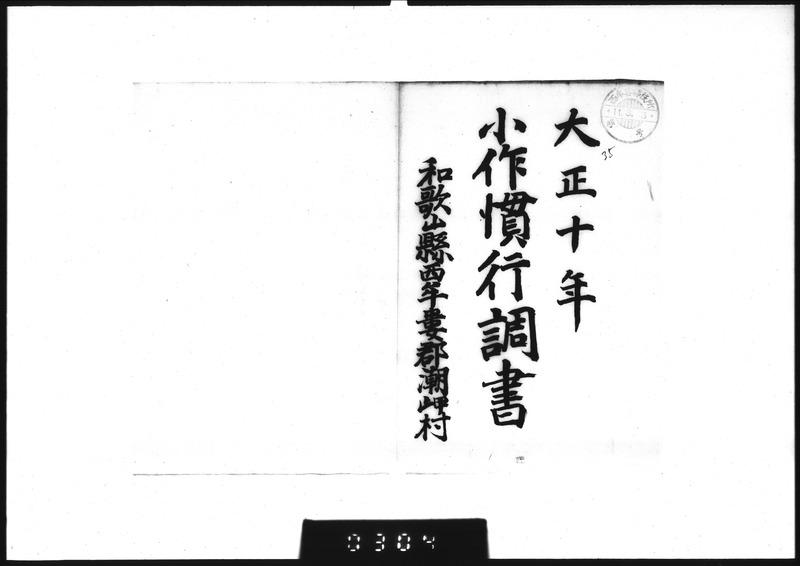 大正十年
小作慣行調書
和歌山縣西牟婁郡潮岬村
35
0304